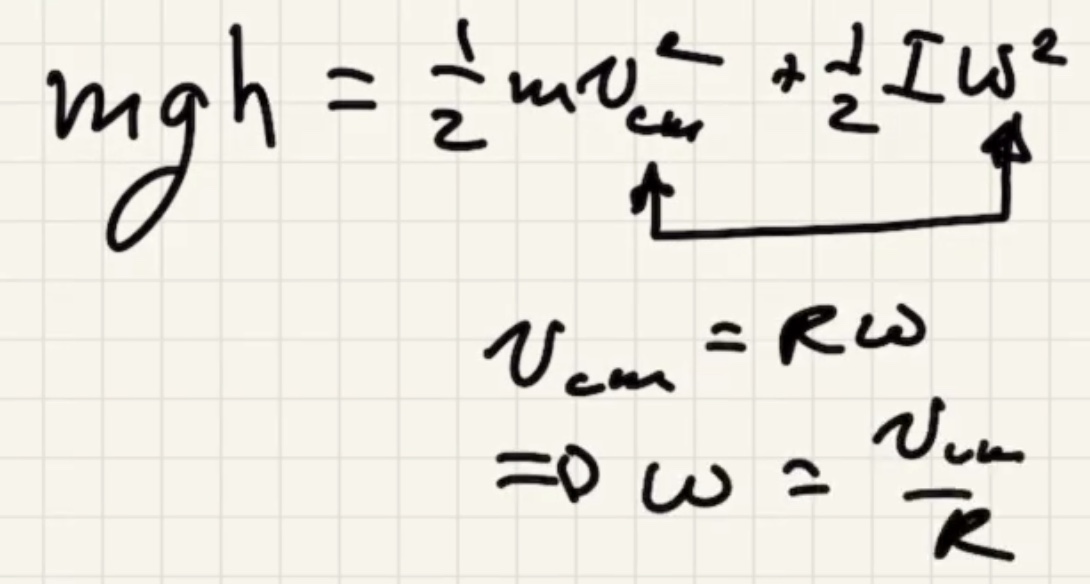 mgh = 1/2 mv_cm^2 + 1/2 Iω^2
v_cm = Rω
⇒ ω = v_cm/R